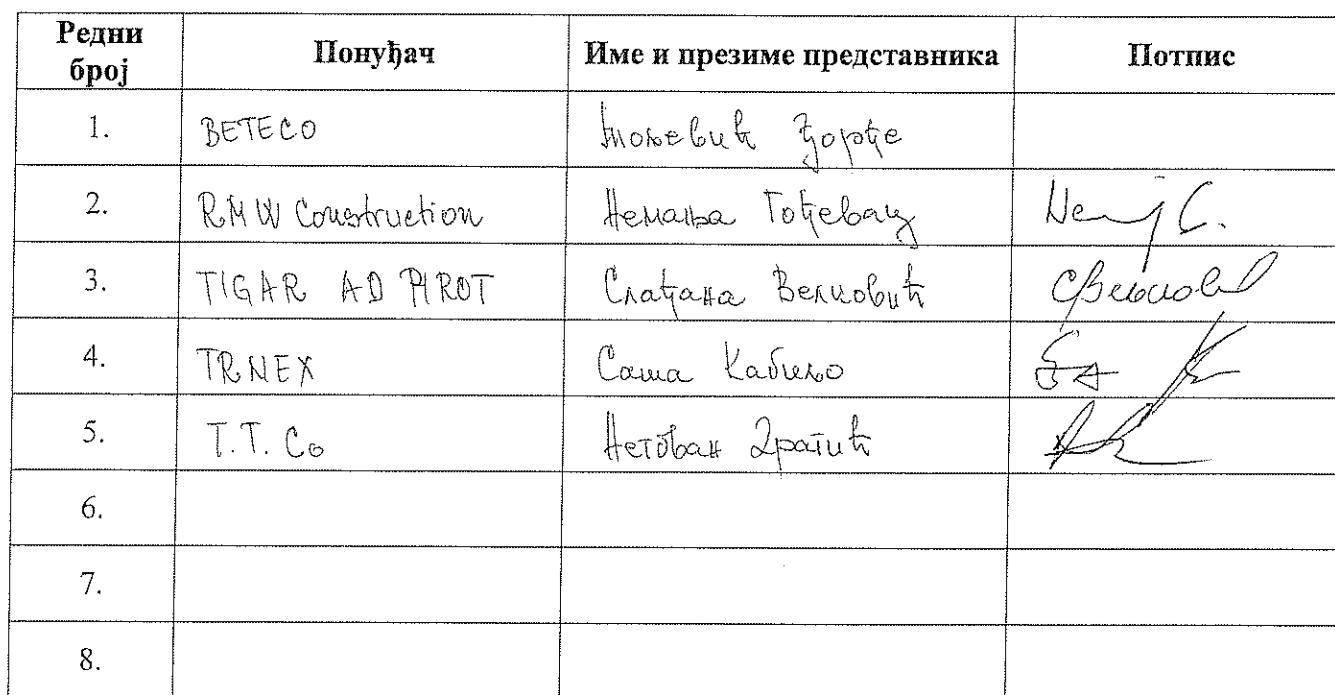 Редни број Понуђач Име и презиме представника Потпис
1. BETECO Ђорђе
2. RMW Construction Немања Гођевац
3. TIGAR AD PIROT Слађана Велковић
4. TRNEX Саша Кабиљо
5. T.T. Co
6.
7.
8.